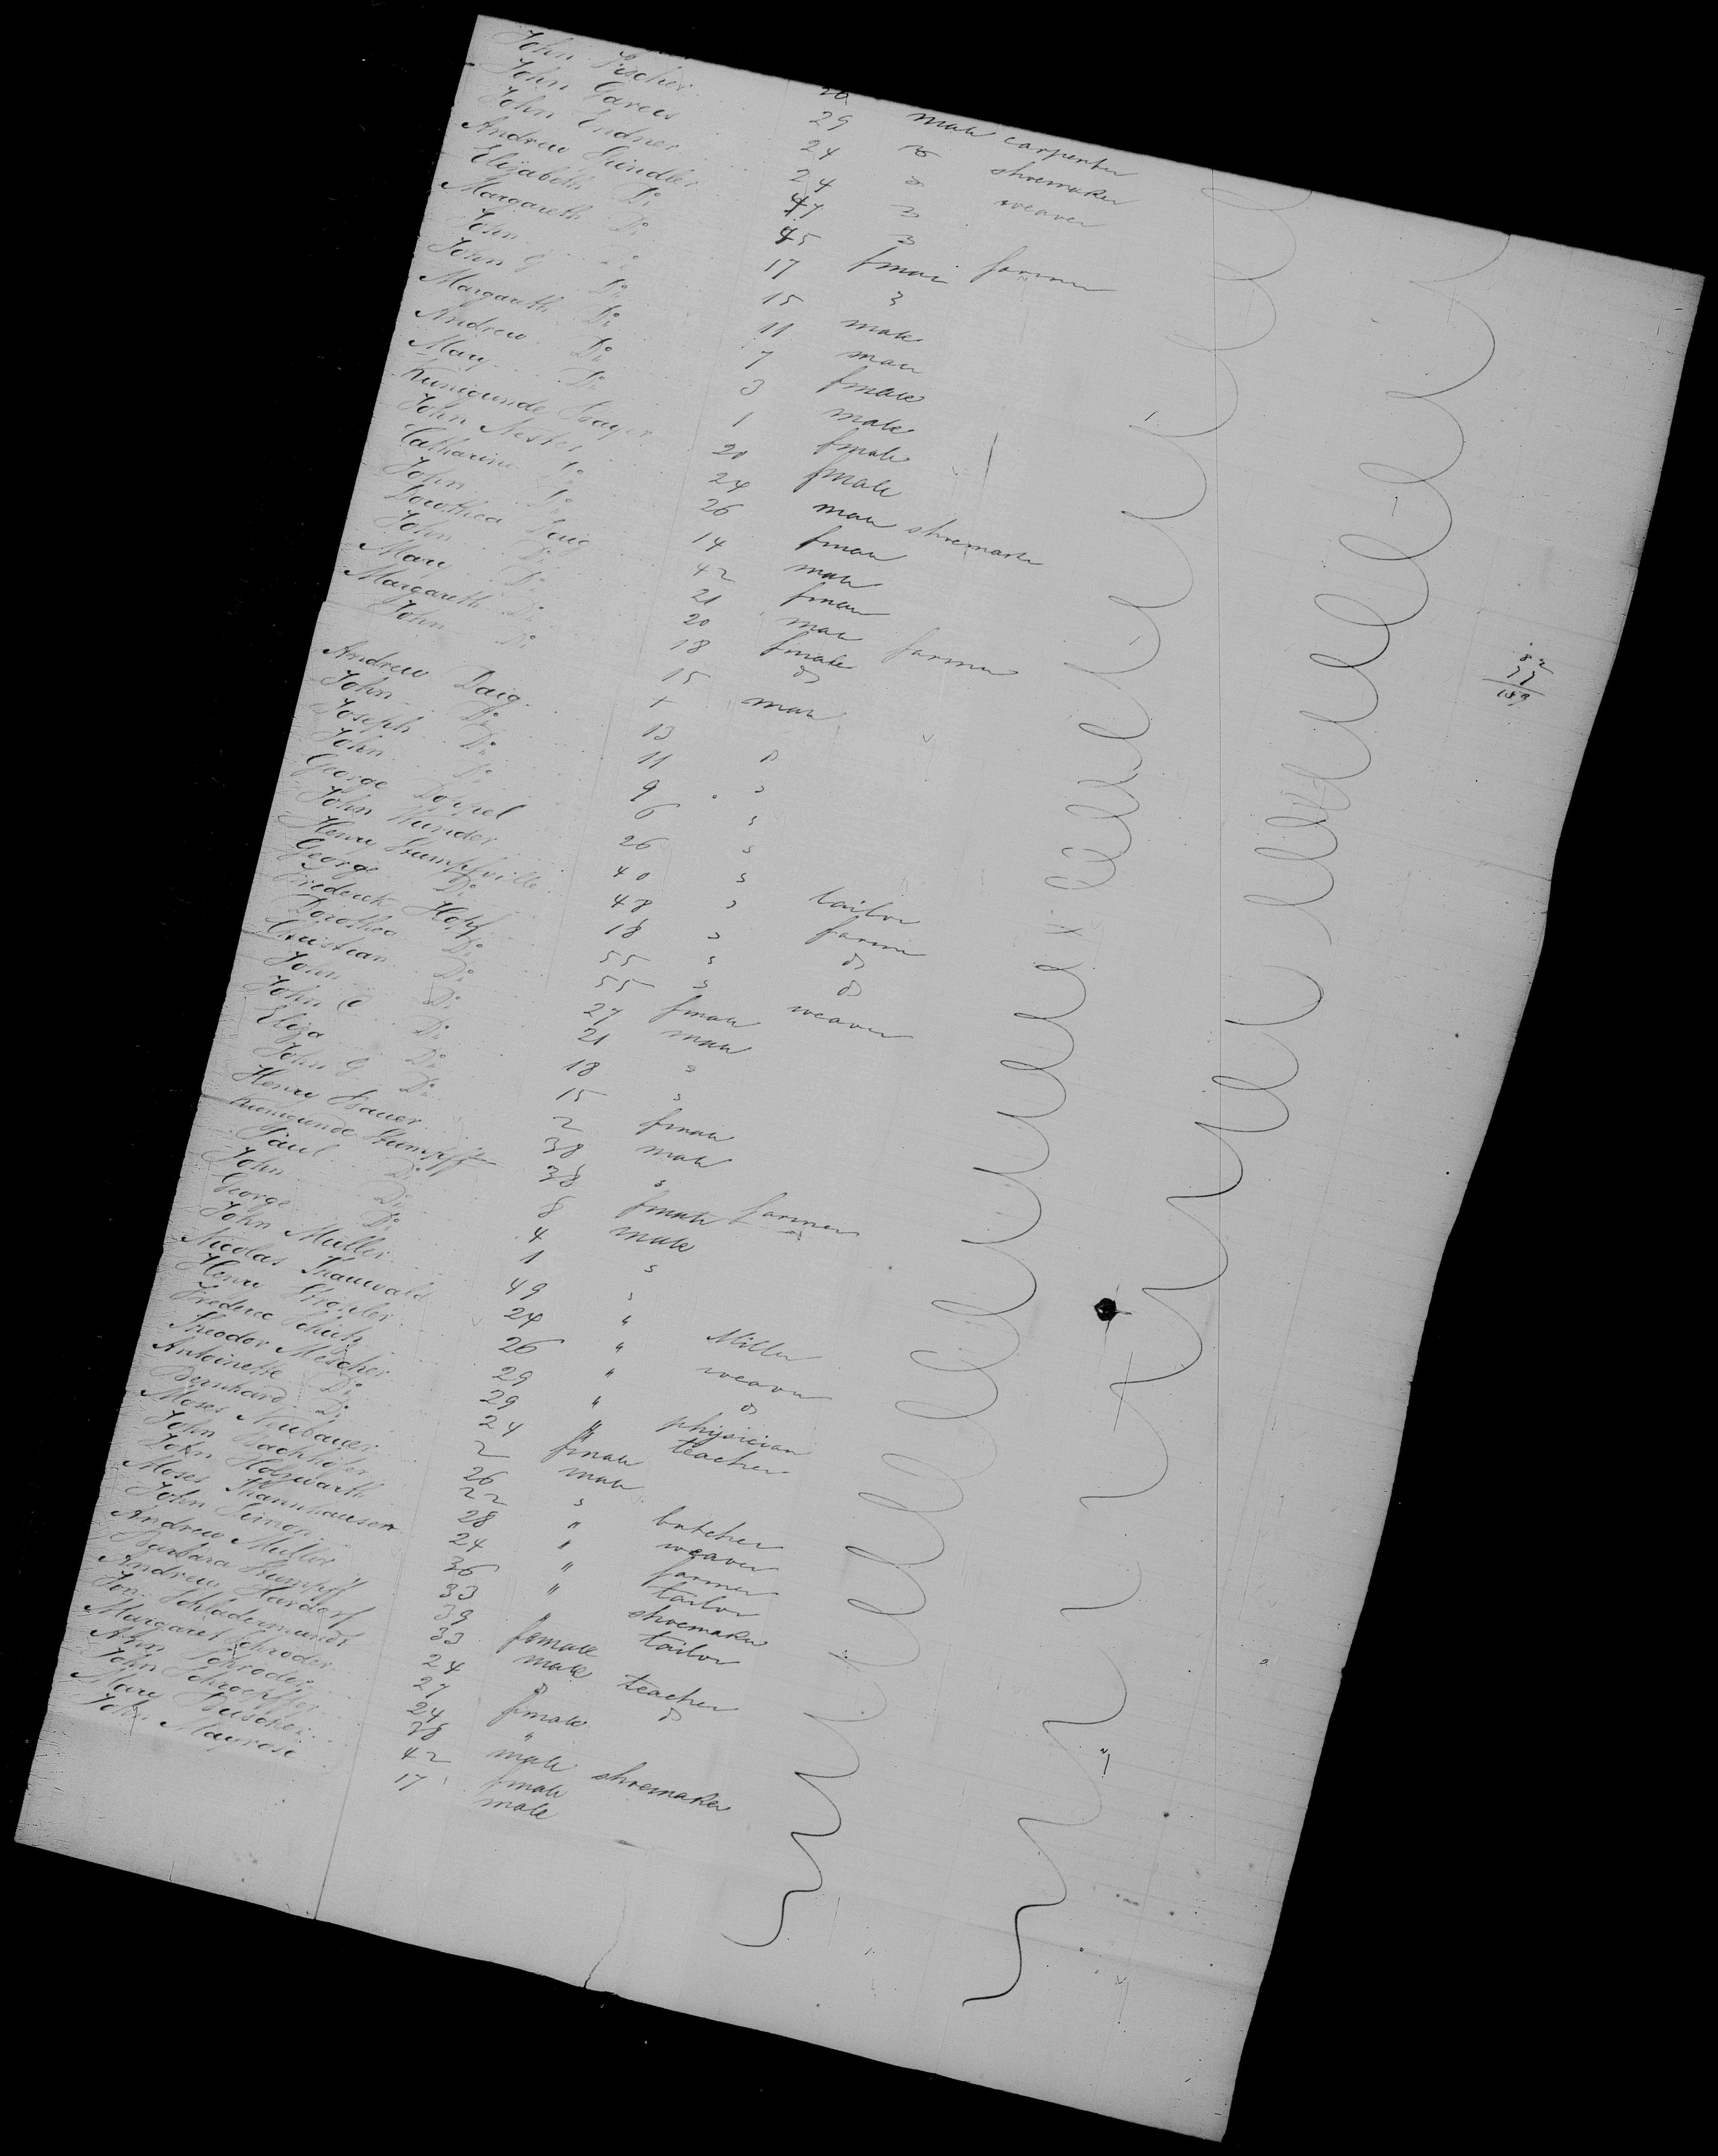 20 male carpenter
John Fischer 29 do shoemaker
John Gareis 24 do weaver
John Endner 24 do
Andrew 47 do farmer
Elizabeth Do 45 fmale
Margareth Do 17 do
John Do 15 male
John G Do 11 male
Margareth Do 7 fmale
Andrew Do 3 male
Mary Do 1 fmale
Kunigunde Bayer 20 fmale
John Nester 24 male shoemaker
Catharine Do 26 fmale
John Do 14 male
Dorothea Daig 42 fmale
John Do 21 male farmer
Mary Do 20 fmale
Margareth Do 18 do
John Do 15 male
+
Andrew Daig 13 do
John Do 11 do
Joseph Do 9 do
John Do 6 do
George Doppel 26 do tailor
John Wunder 40 do farmer
Henry Stumpfville 48 do do
George Do 18 do do
Frederick Hopf 55 do weaver
Dorothea Do 55 fmale
Christian Do 27 male
John Do 21 do
John C Do 18 do
Eliza Do 15 fmale
John G Do 2 male
Henry Bauer 38 do farmer
Kunigunde Stumpff 38 fmale
Paul Do 8 male
John Do 4 do
George Do 1 do
John Muller 49 " Miller
Nicolas Thauwald 24 " weaver
Henry Strobler 26 " do
Frederic Schutz 29 " physician
Theodor Mescher 29 " teacher
Antoinette Do 24 fmale
Bernhard Do 2 male
Moses Neubauer 26 do butcher
John Bachhofer 22 " weaver
John Holzwarth 28 " farmer
Moses Thannhauser 24 " tailor
John Simon 36 " shoemaker
Andrew Muller 33 " tailor
Barbara Stumpff 39 female
Andrew Hardorf 33 male teacher
Jon Schladermundt 24 do do
Margaret Schroder 27 fmale
Ann Schroder 24 "
John Schroepffer 38 male shoemaker
Mary Buscher 42 fmale
John Mayrose 17 male
82
77
159